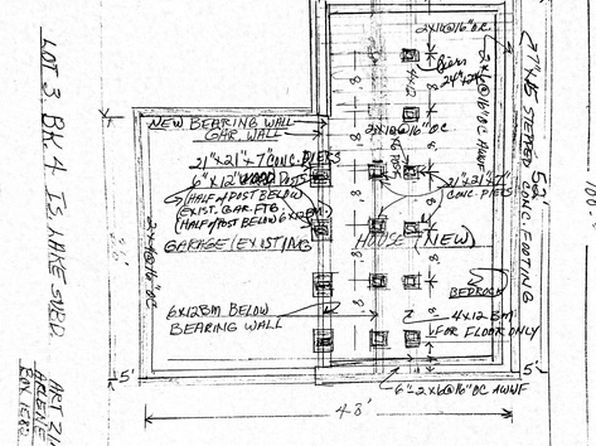 2X10@16"O.C.
8'
Piers
24"X24"
4X12
2X6@16"OC AWWF
7"X15 STEPPED CONC. FOOTING
52'
100
NEW BEARING WALL
GAR. WALL
8'
8'
2X10@16"OC
21"X21"X7"CONC. PIERS
6"X12" WOOD POSTS
(HALF OF POST BELOW
EXIST. GAR. FTG.
(HALF OF POST BELOW 6X12BM.
21"X21"X7"
CONC. PIERS
GARAGE (EXISTING
HOUSE (NEW)
2X4@16"OC
8'
8'
8'
8'
BEDROCK
6X12BM BELOW
BEARING WALL
4X12 BM
FOR FLOOR ONLY
5'
5'
6"-2X6@16"OC AWWF
48'
LOT 3 BK 4 IS. LAKE SUBD.
ART
BOX